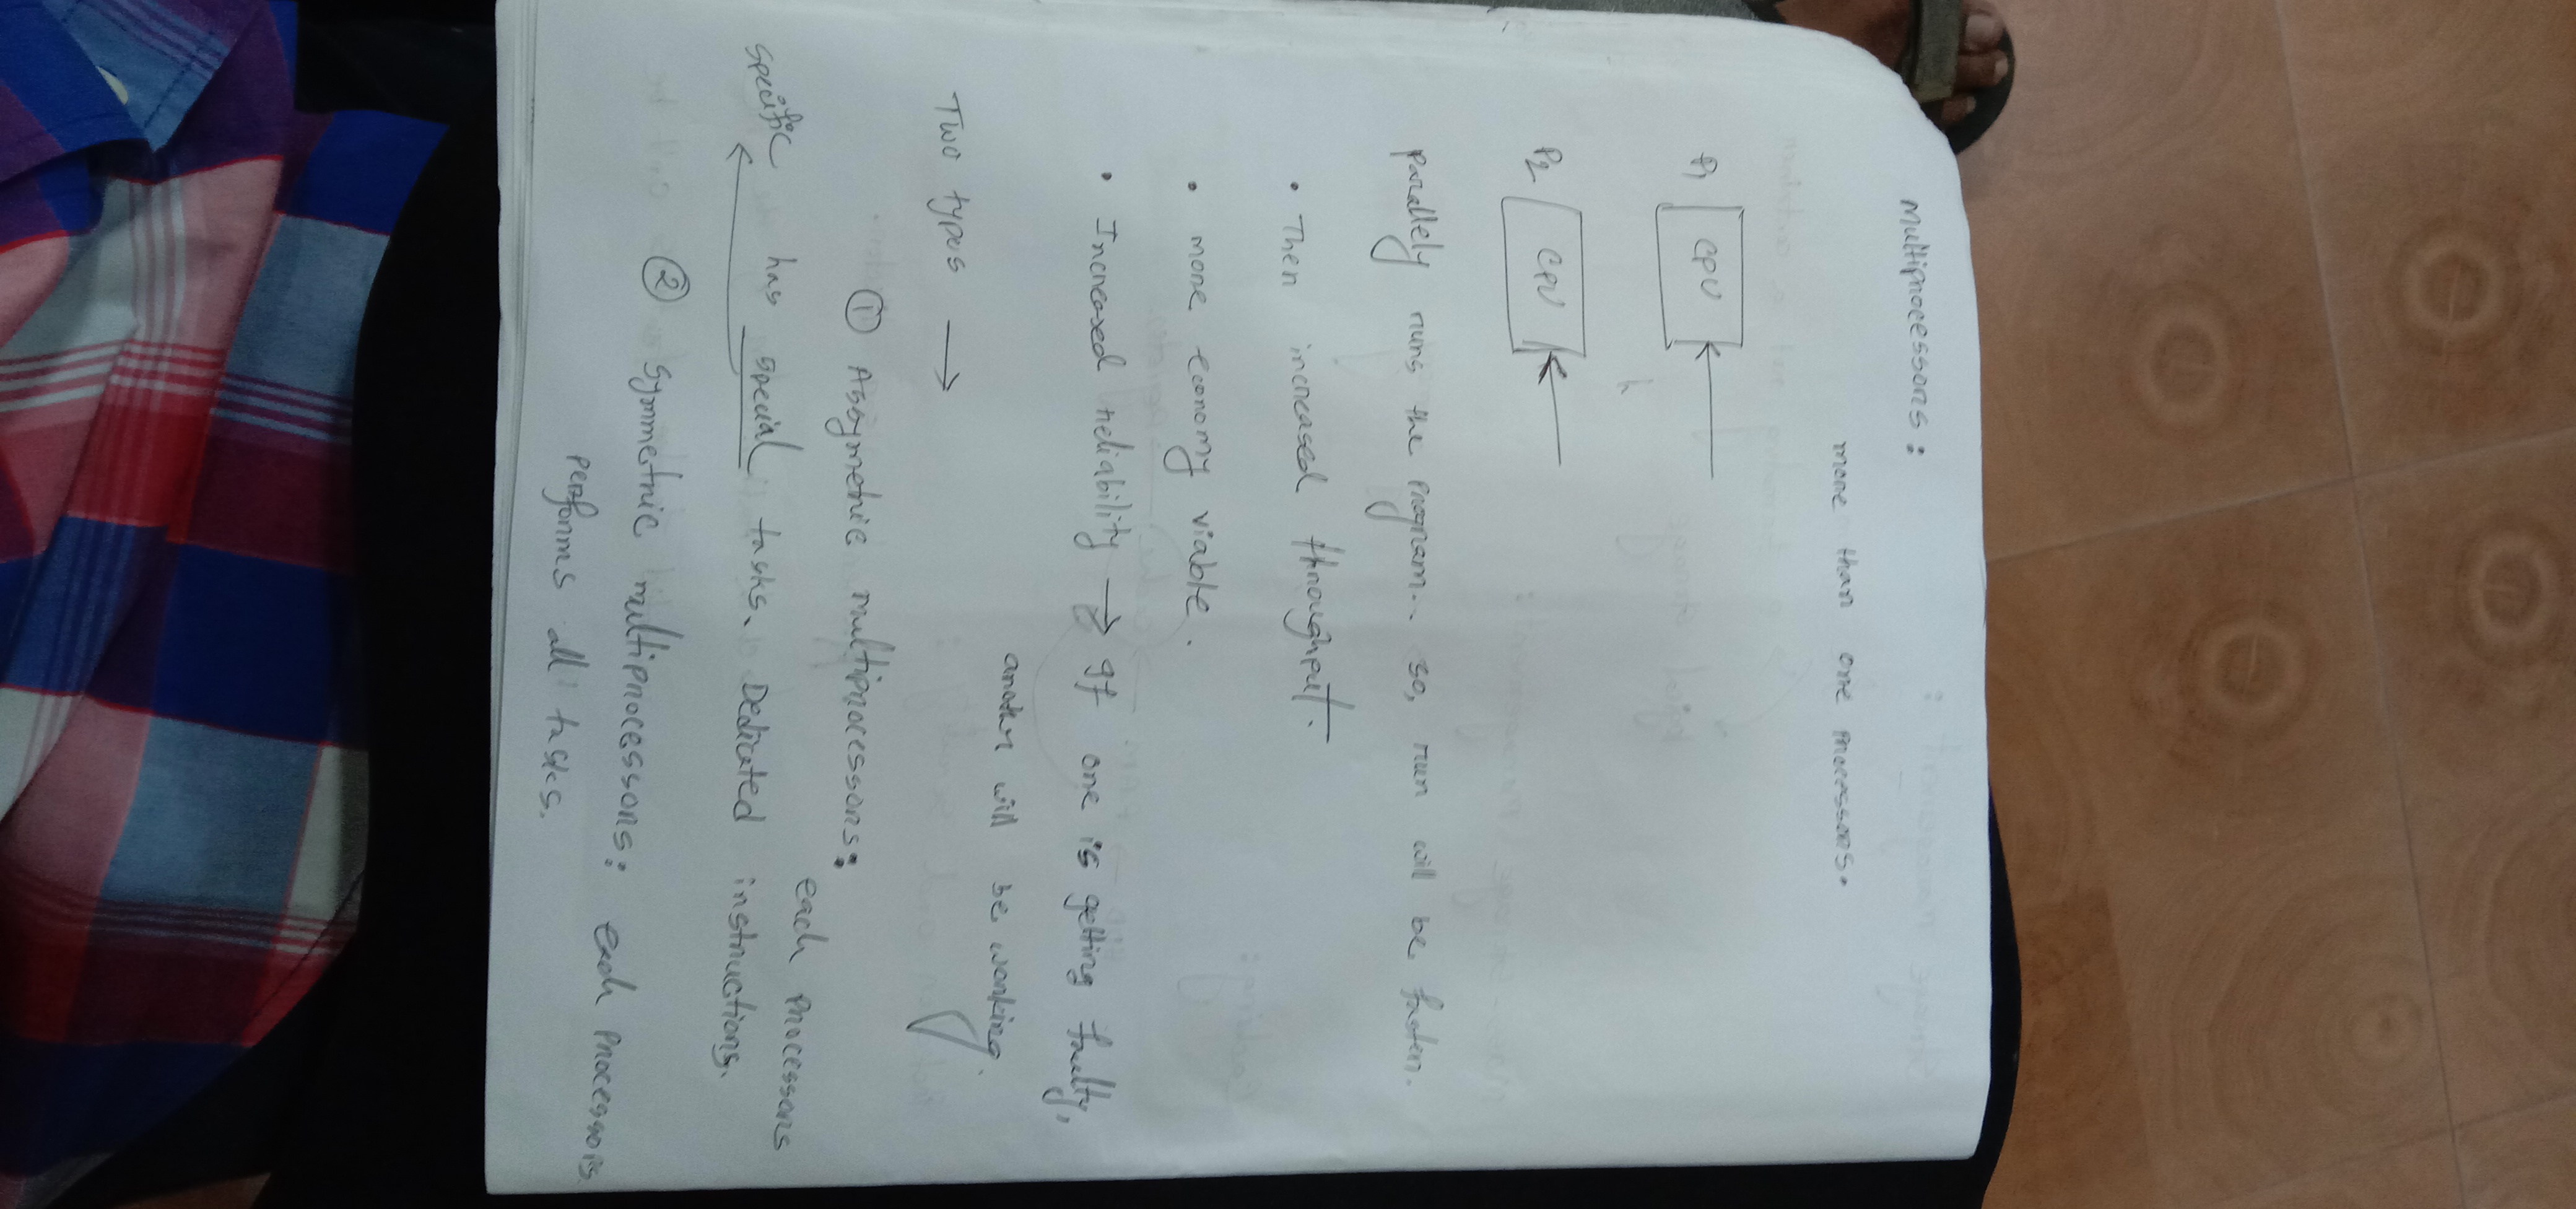 Multiprocessors:
more than one processors.
P1 CPU
P2 CPU
parallely runs the program... so, run will be faster.
• Then increased throughput.
• more economy viable.
• Increased reliability → If one is getting faulty,
another will be working.
Two types →
① Assymetric multiprocessors:
each processors
specific has special tasks. Dedicated instructions.
② Symmetric multiprocessors: each processors
performs all tasks.